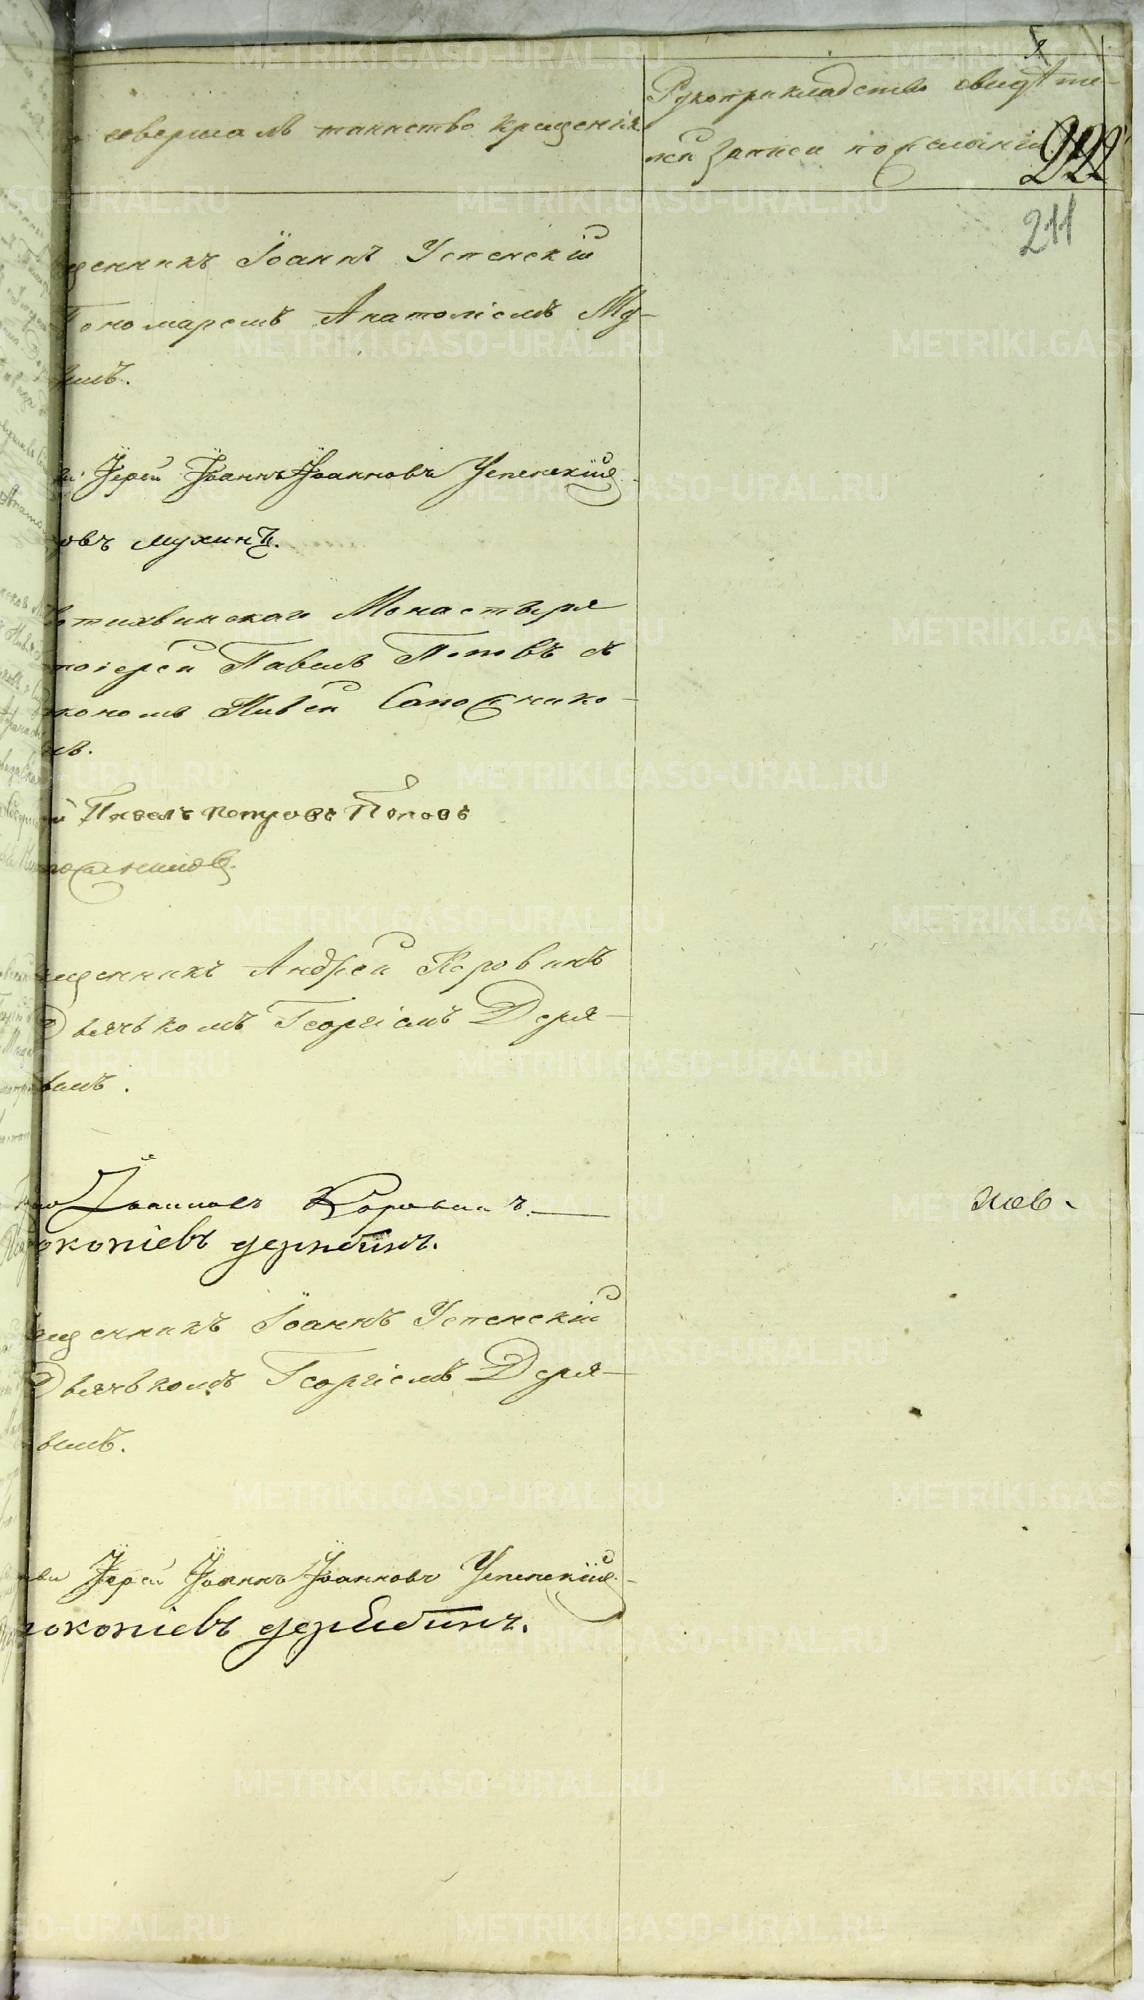 совершалъ таинство крещенія
Рукоприкладство свидѣте-
лей записи по желанію
222
211
щенникъ Іоаннъ Успенскій
Пономаремъ Анатоліемъ Му-
нымъ.
Іерей Іоаннъ Іоанновъ Успенскій
овъ Мухинъ.
тихвинскаго Монастыря
тоіерей Павелъ Поповъ съ
кономъ Сапожнико-
мъ.
й Павелъ Петровъ Поповъ
пожниковъ.
щенникъ Андрей Коровинъ
Дьячькомъ Георгіемъ Деря-
нымъ.
Іоанновъ Коровинъ.
окопіевъ дерябинъ.
Іюв.
щенникъ Іоаннъ Успенскій
Дьячькомъ Георгіемъ Деря-
нымъ.
Іерей Іоаннъ Іоанновъ Успенскій
рокопіевъ дерябинъ.
METRIKI.GASO-URAL.RU